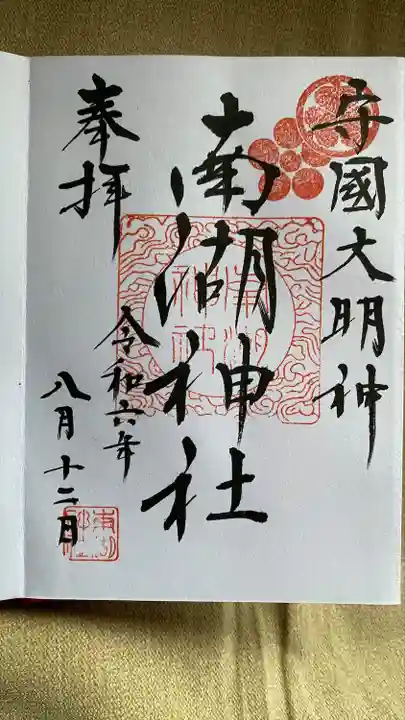 守國大明神
南湖神社
奉拝
令和六年
八月十二日
南湖神社